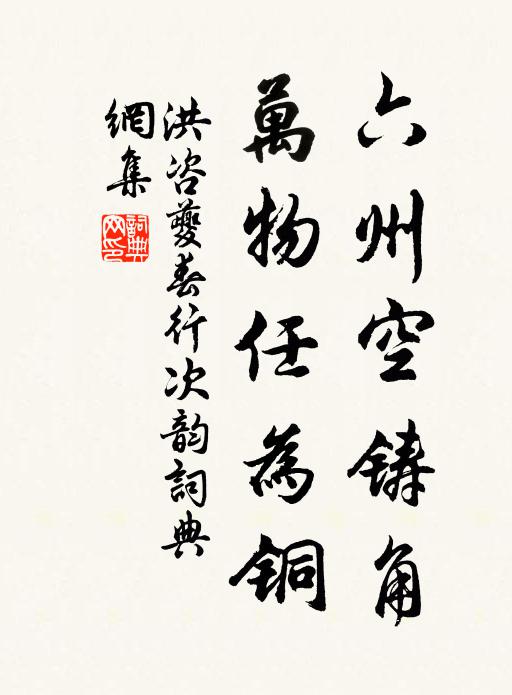 六州空铸角
萬物任為铜
洪咨夔春行次韵詞典
網集
詞典
网印